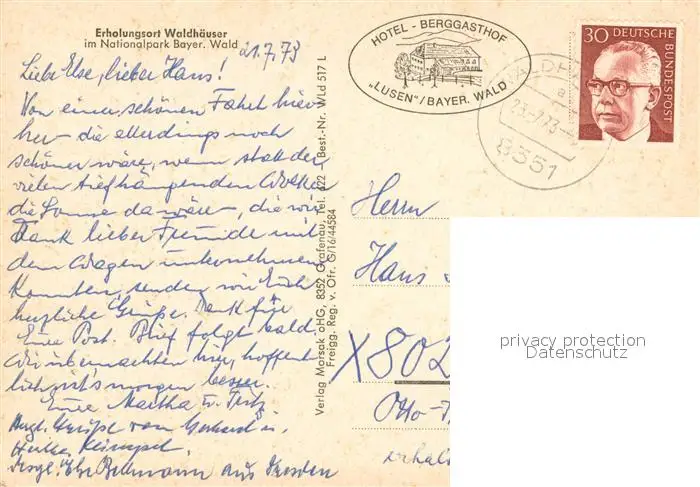 Erholungsort Waldhäuser
im Nationalpark Bayer. Wald
21.7.73
Liebe Else, lieber Hans!
Von einer schönen Fahrt hier
her – die allerdings noch
schöner wäre, wenn statt der
vielen tiefhängenden Wolken
die Sonne da wäre, die wir
Dank lieber Freunde mit
dem Wagen unternehmen
konnten, senden wir Euch
herzliche Grüße. Dank für
Eure Post. Brief folgt bald.
Wir übernachten hier, hoffent
lich ist's morgen besser.
Eure Martha u. Fritz
Hrzl. Grüße von Gerhard u.
Desgl. Ehe aus Dresden
Verlag Morsak oHG, 8352 Grafenau, Tel. 622 Best.-Nr. WLd 517 L
Freigg. Reg. v. Ofr. G/16/44584
HOTEL - BERGGASTHOF
„LUSEN"/BAYER. WALD
WALDH
a
23.-7.73
8351
30 DEUTSCHE BUNDESPOST
Herrn
Hans
X802
Otto-
erhal
privacy protection
Datenschutz